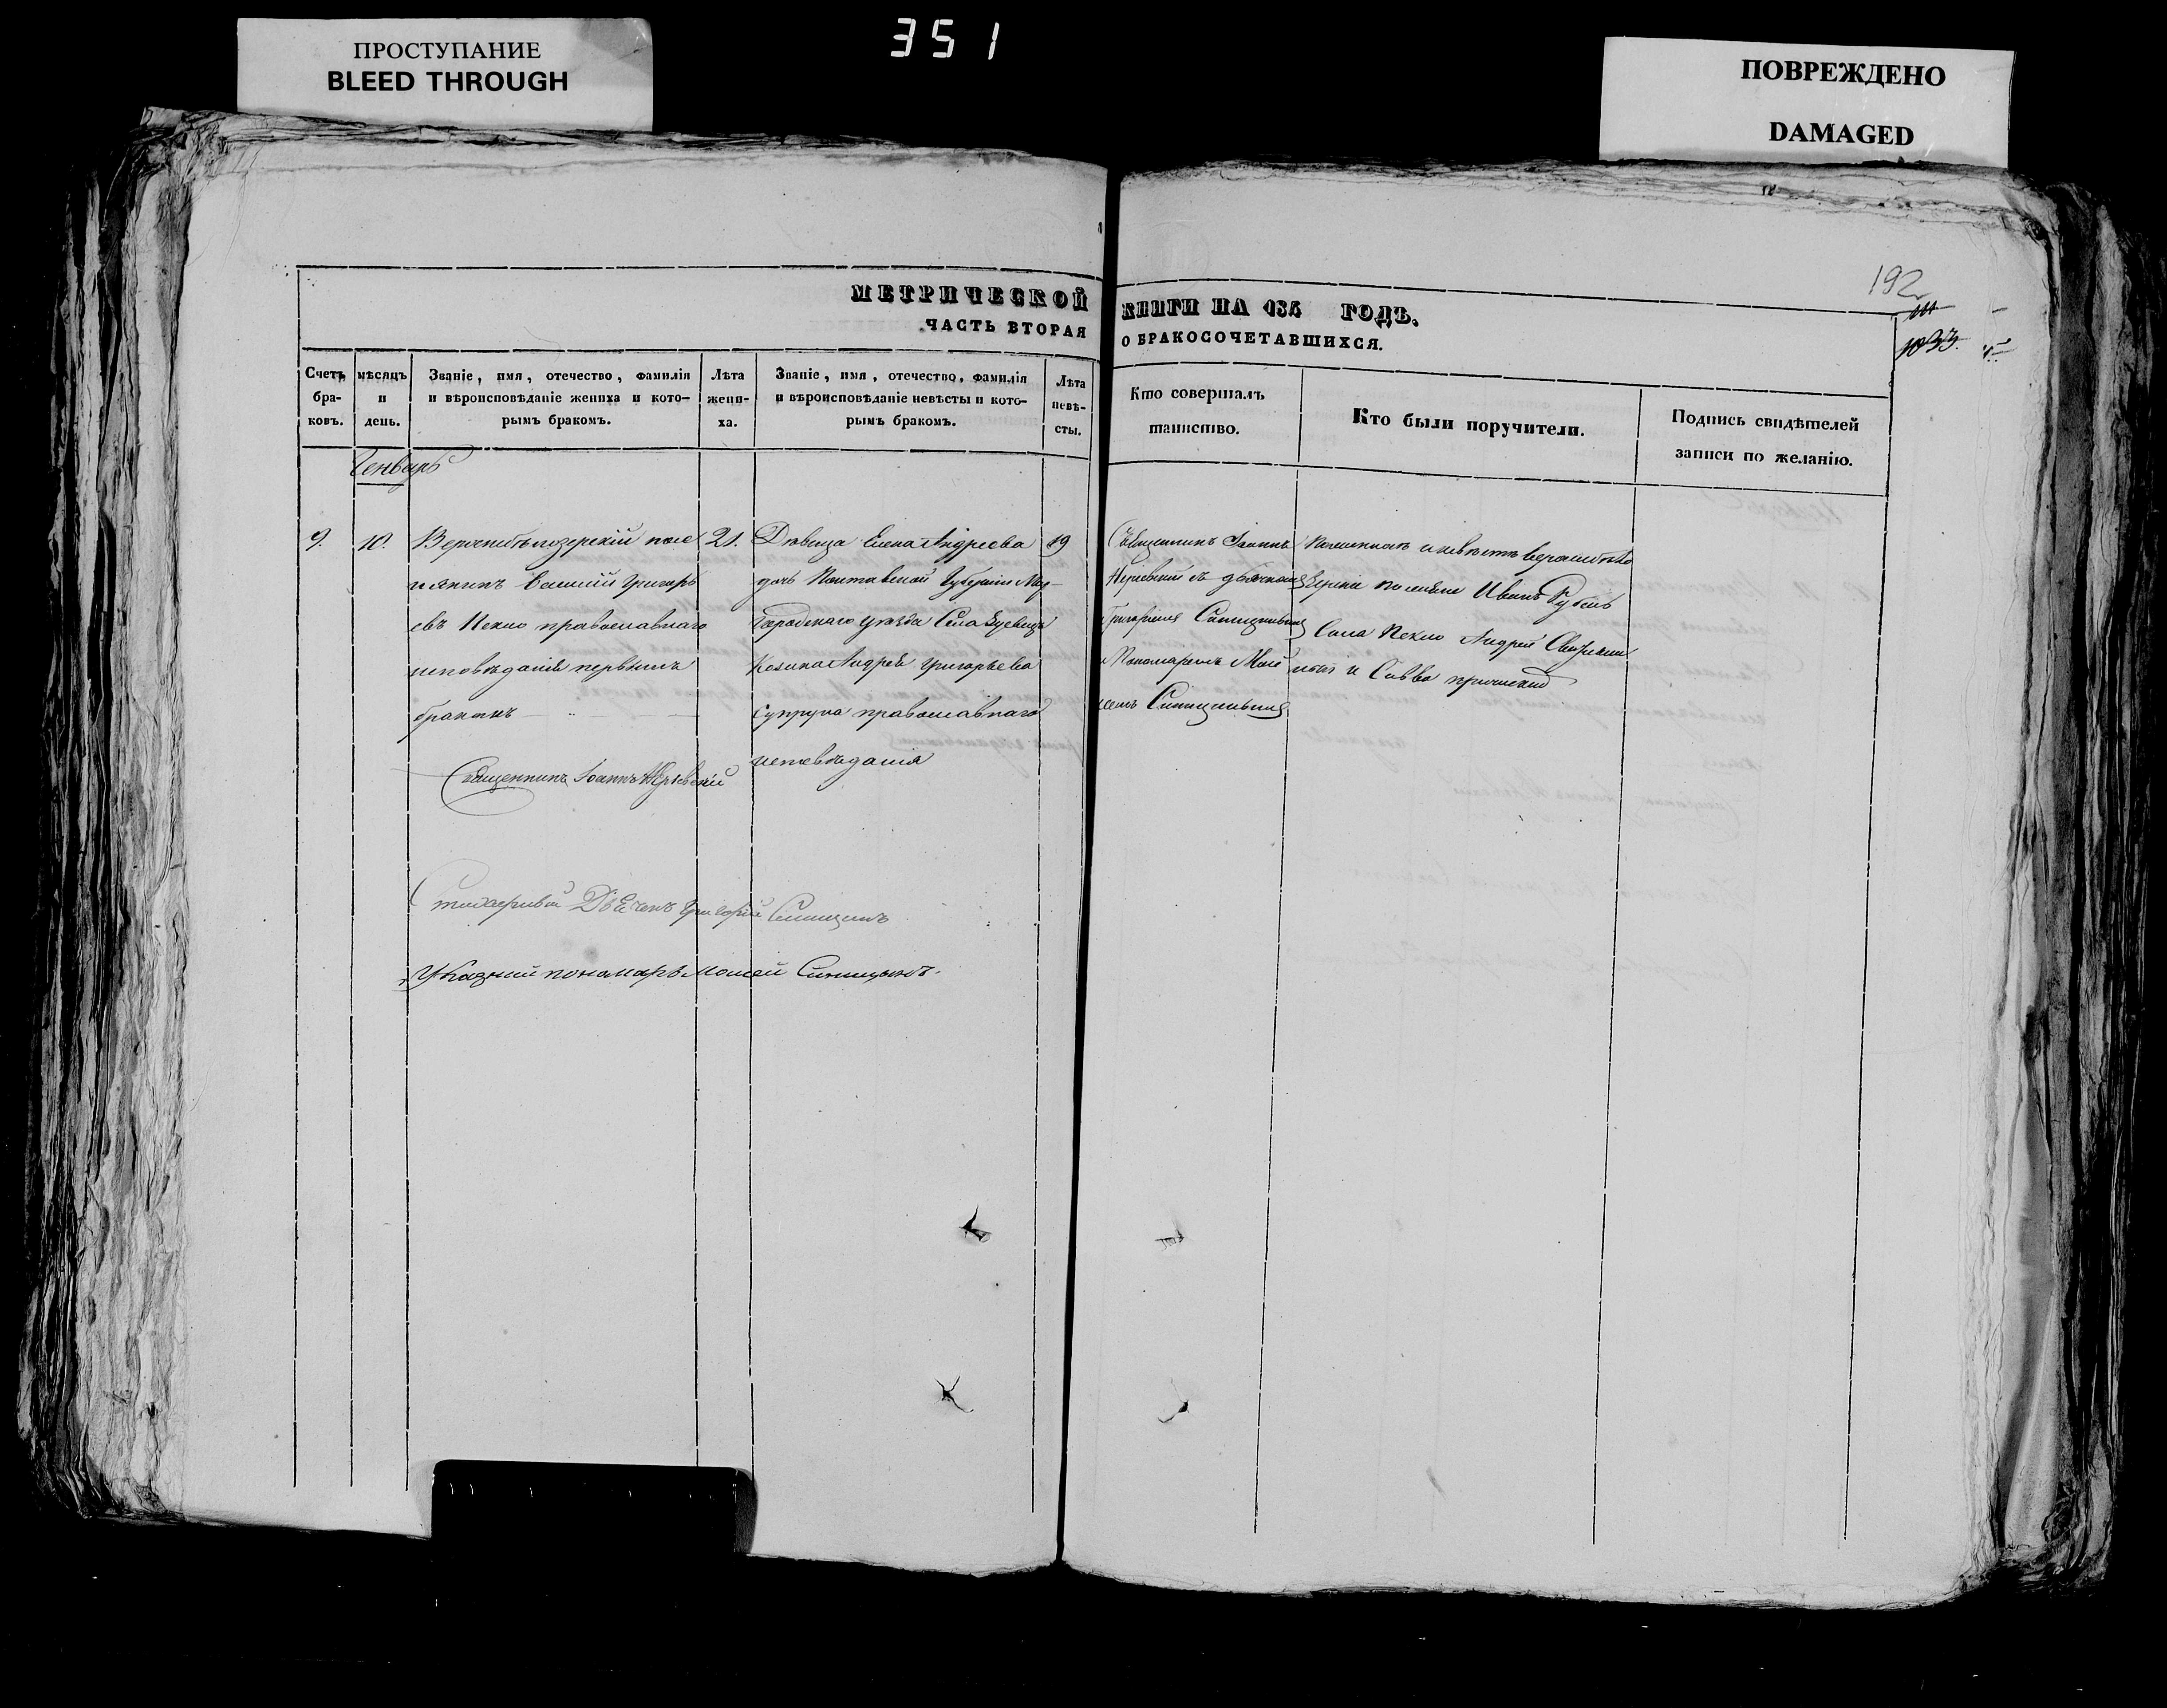 351
ПРОСТУПАНИЕ
BLEED THROUGH
ПОВРЕЖДЕНО
DAMAGED
192
1033.
МЕТРИЧЕСКОЙ КНИГИ НА 184 ГОДЪ.
ЧАСТЬ ВТОРАЯ О БРАКОСОЧЕТАВШИХСЯ.
Счетъ бра-ковъ.
мѣсяцъ и день.
Званіе, имя, отечество, фамилія
и вѣроисповѣданіе жениха и кото-
рымъ бракомъ.
Лѣта жени-ха.
Званіе, имя, отечество, фамилія
и вѣроисповѣданіе невѣсты и кото-
рымъ бракомъ.
Лѣта невѣ-сты.
Кто совершалъ
таинство.
Кто были поручители.
Подпись свидѣтелей
записи по желанію.
Генварь
9.
10.
Верхнебѣлозерскій посе
лянинъ Василій Григорь
евъ Пекло православнаго
исповѣданія первымъ
бракомъ
21.
Дѣвица Елена Андреева
дочь Полтавской Губерніи Мир-
городскаго уѣзда Села Зуевецъ
Козака Андрея Григорьева
Супруна православнаго
исповѣданія
19
Священникъ Іоаннъ
съ дьячкомъ
Григоріемъ Синицынымъ
и Пономаремъ Мои
сеемъ Синицынымъ
По женихѣ и невѣстѣ верхнебѣло
зерскіе поселяне Иванъ Рубель
Сава Пекло Андрей
и Савва
Священникъ Іоаннъ
Стихаревый Дьячокъ Григорій Синицынъ
Указный пономарь Моисей Синицынъ.